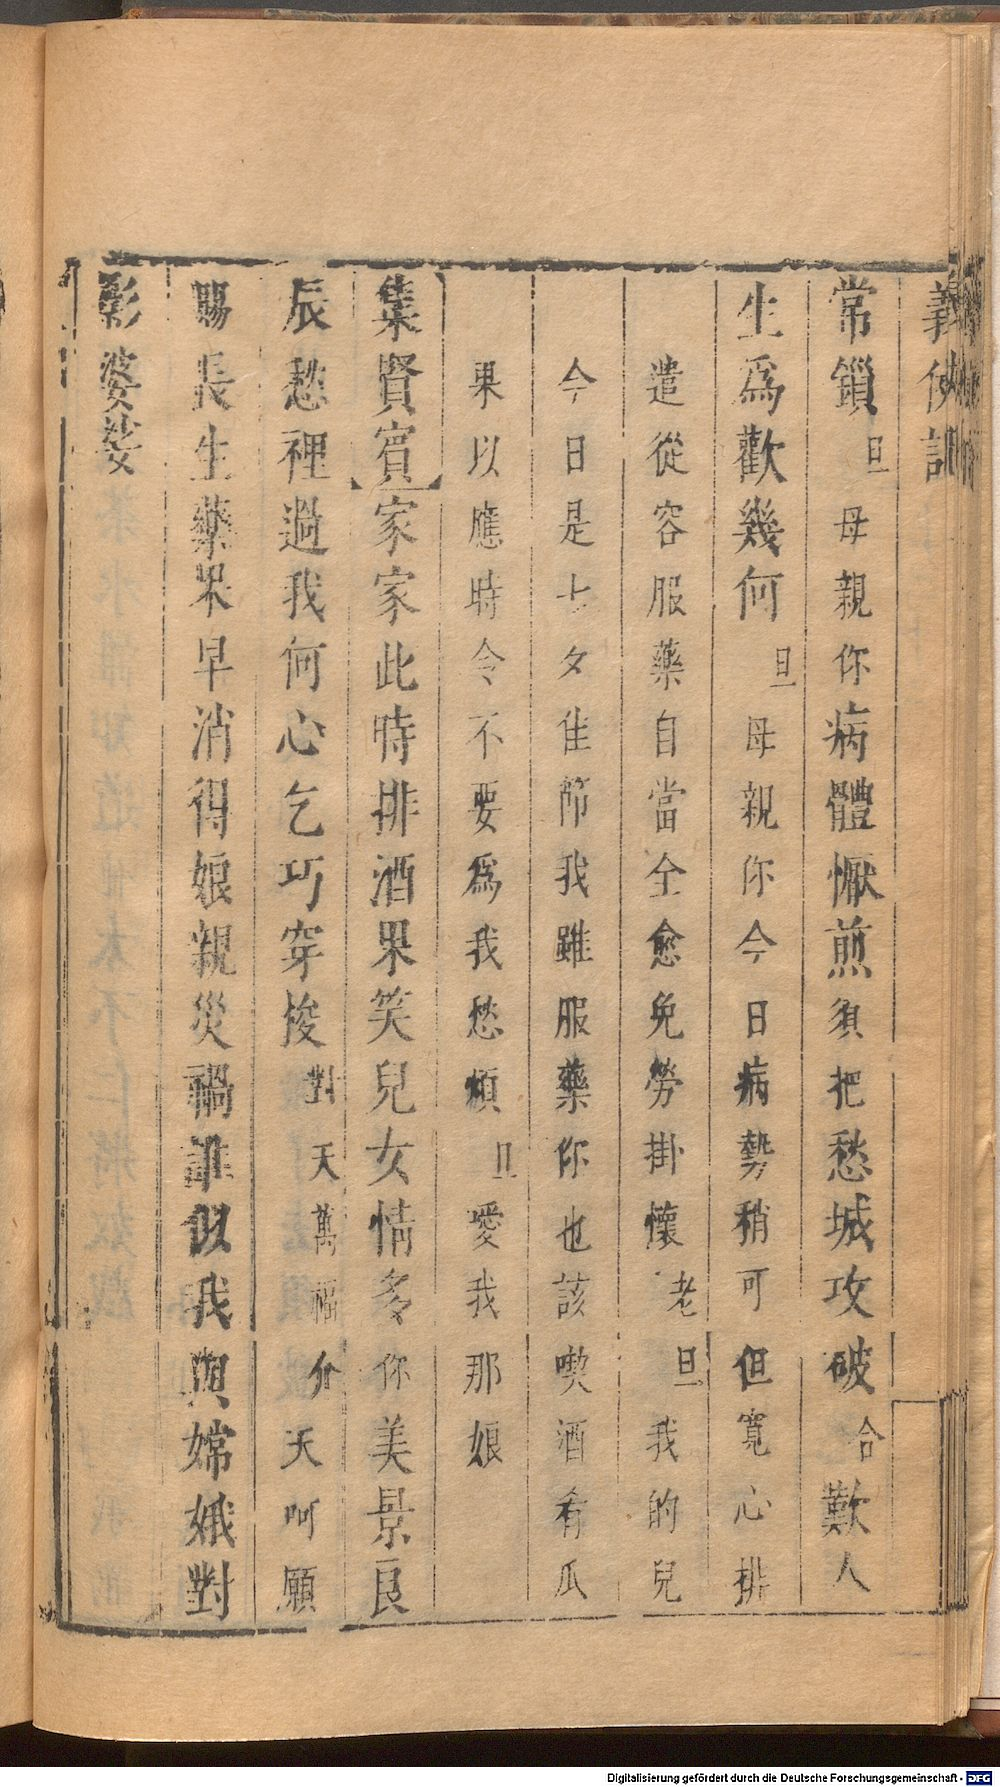 義俠記
常鎖旦母親你病體懨煎須把愁城攻破合歎人
生爲歡幾何旦母親你今日病勢稍可但寬心排
遣從容服藥自當全愈免勞掛懷老旦我的兒
今日是七夕佳節我雖服藥你也該喫酒肴瓜
果以應時令不要爲我愁煩旦愛我那娘
集賢賓家家此時排酒果笑兒女情多你美景良
辰愁裡過我何心乞巧穿梭對天萬福介天呵願
賜長生藥果早消得娘親災禍誰似我與嫦娥對
影婆娑
Digitalisierung gefördert durch die Deutsche Forschungsgemeinschaft - DFG